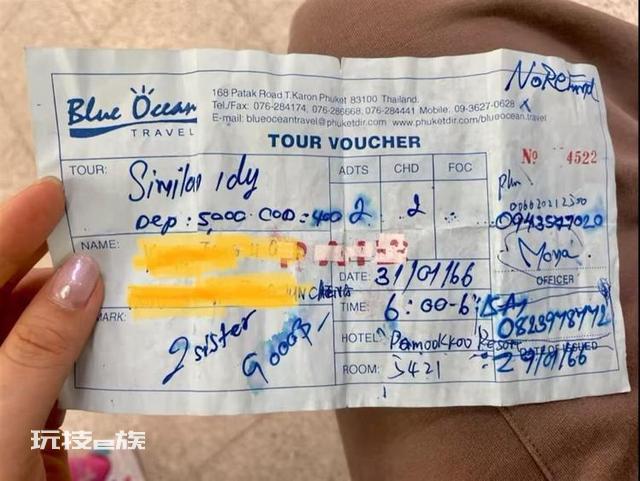 Blue Ocean
TRAVEL
168 Patak Road T.Karon Phuket 83100 Thailand.
Tel/Fax: 076-284174, 076-286668, 076-284441 Mobile: 09-3627-0628
E-mail: blueoceantravel@phuketdir.com/www.phuketdir.com/blueocean.travel
NoREfund
TOUR VOUCHER
No 4522
TOUR: Similan 1dy
Dep: 5,000 COD: 400
ADTS CHD FOC
2 2
0943577020
Mona
OFFICER
NAME:
DATE: 31/01/66
TIME: 6:00-6
0823978772
MARK:
2 sister
HOTEL: Pamookkoo Resort
DATE OF ISSUED
29/01/66
ROOM: 3421
玩技e族